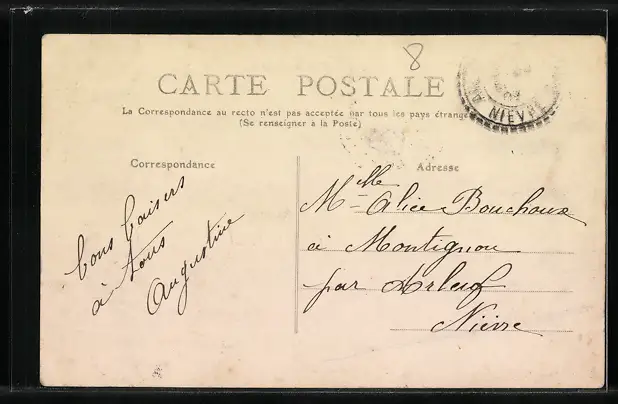 8
CARTE POSTALE
La Correspondance au recto n'est pas acceptée par tous les pays étrange
(Se renseigner à la Poste)
NIEVRE
Correspondance
Adresse
Bons baisers
à tous
Augustine
Melle Alice Bouchoux
à Montignon
par Arleuf
Nièvre